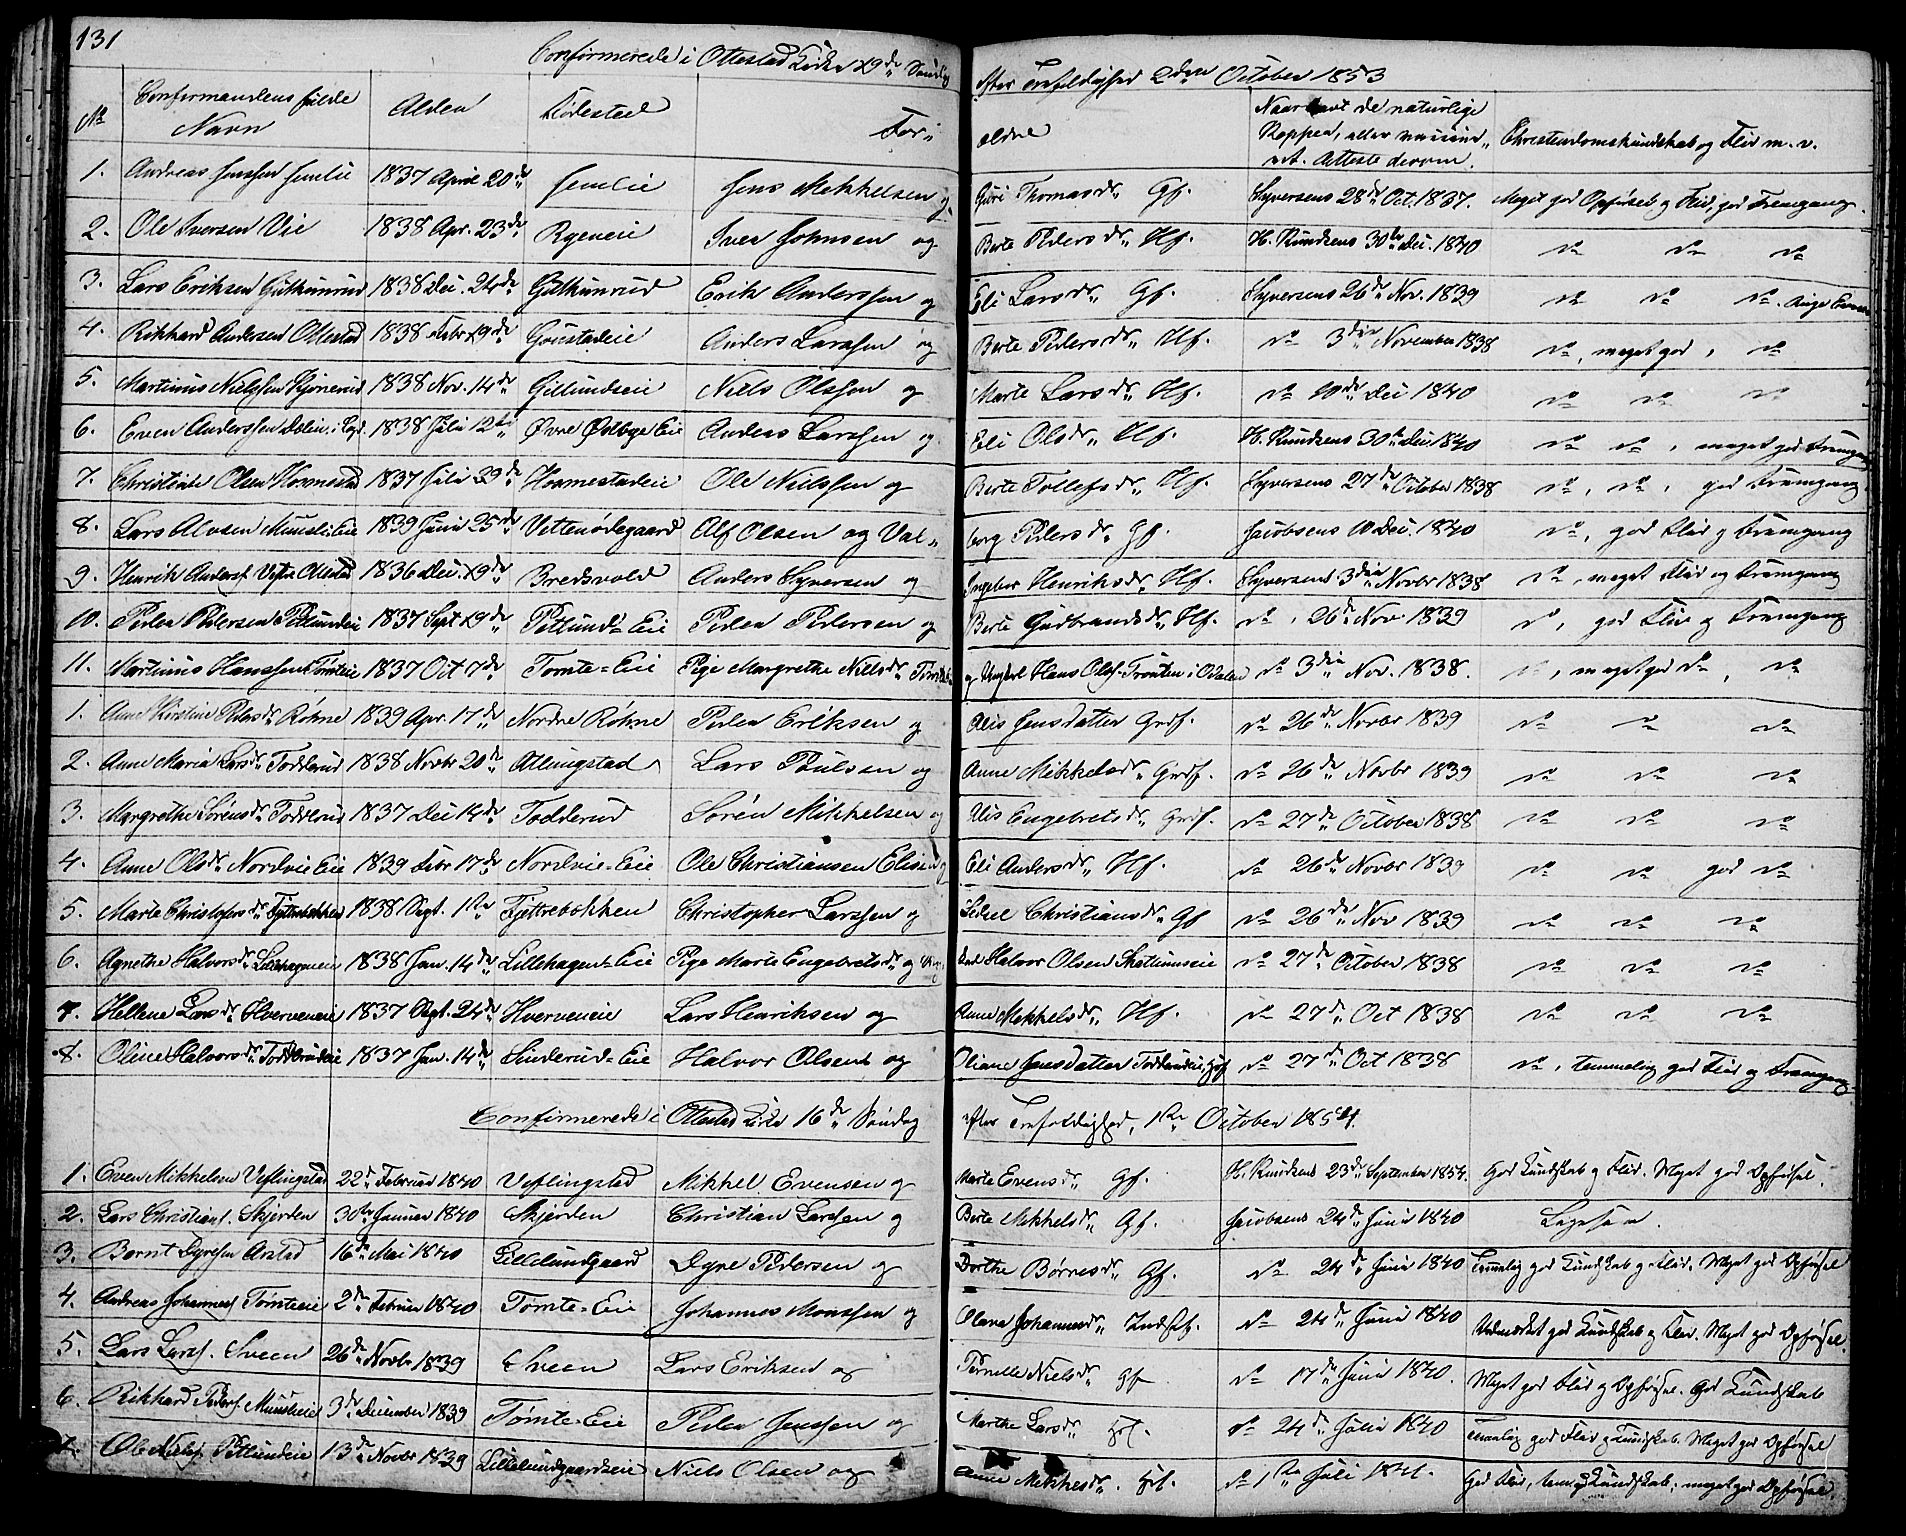 131
Confirmerede i Ottestad Kirke 19de Søndag efter Trefoldighed 2den October 1853
No Confirmandens fulde Navn Alder Fødested For- ældre Naar havt de naturlige Kopper, eller vaccineret. Attester derom. Christendomskundskab og Flid m. v.
1. Andreas Jenssen Jemlie 1837 April 20de Jemlie Jens Mikkelsen og Guri Thomasdr. Gf. Syversens 28de Oct. 1837. Meget god Opførsel og Flid, god Fremgang.
2. Ole Iversen Vie 1838 Apr. 23de Ryeneie Iver Johnsen og Berte Pedersdr. Hf. H. Knudsens 30te Dec. 1840 do do do
3. Lars Eriksen Gulkunrud 1838 Dec. 24de Gulkunrud Erik Anderssen og Eli Larsdr. Gf. Syversens 26de Nov. 1839 do do do
4. Rikhard Andersen Ottestad 1838 Febr 19de Goustadeie Anders Larssen og Berte Pedersdr. Hf. do 3die November 1838 do, meget god, do
5. Martinus Nielssen Kjønerud 1838 Nov. 14de Gillundseie Niels Olssen og Marte Larsdr. Hf. do 10de Dec 1840 do do do
6. Even Anderssen 1838 Juli 12te Øvre Ødbye Eie Anders Larssen og Eli Olsdr. Hf. H. Knudsens 30te Dec 1840 do do, meget god Fremgang
7. Christian Olsen Hommestad 1837 Juli 29de Hommestadeie Ole Nielssen og Berte Tollefsdr. Hf. Syversens 27de October 1838 do, do, god Fremgang
8. Lars Alvsen Munsli Eie 1839 Juni 25de Vettenødegaard Alf Olsen og Val- borg Pedersdr. Gf. Jacobsens 10 Dec. 1840 do, god Flid og Fremgang
9. Henrik Andersf. Ottestad 1836 Dec. 19de Bredsvold Anders Syversen og Ingebor Henriksdr. Hf. Syversens 3die Novbr 1838 do, meget Flid og Fremgang
10. Peder Pedersen Petlundeie 1837 Sept 19de Petlund-Eie Peder Pedersen og Berte Gudbrandsdr. Hf. do, 26de Nov 1839 do, god Flid og Fremgang
11. Martinus Hanssen Tomteie 1837 Oct 7de Tomte-Eie Pige Margrethe Nielsdr. og Ungkarl Hans Olsf. Trønten i Odalen do 3die Nov. 1838. do, meget god do, do
1. Anne Kirstine Pedersdr. Røhne 1839 Apr. 17de Nordre Røhne Peder Eriksen og Alis Jensdatter Grdf. do 26de Novbr 1839 do do do
2. Anne Maria Larsdr. Todderud 1838 Novbr 20de Atlungstad Lars Poulsen og Anne Mikkelsdr. Grdf. do 26de Novbr 1839 do do do
3. Margrethe Sørensdr. Todderud 1837 Dec 14de Todderud Søren Mikkelsen og Alis Engebretsdr. Grdf. do 27de October 1838 do do do
4. Anne Olsdr. Nordvie Eie 1839 Febr 17de Nordvie-Eie Ole Christiansen og Eli Andersdr. Hf. do 26de Novbr 1839 do do god do
5. Marte Christofersdr. Fjettrebakken 1838 Sept. 1ste Fjettrebakken Christopher Larssen og Christiansdr. Gf do 26de Nov 1839 do do do
6. Agnethe Halvorsdr. Lillehageneie 1838 Jan. 14de Lillehagen-Eie Pige Marte Engebretsdr. og Halvor Olsen Skattumseie do 27de October 1838 do do do
7. Hellene Larsdr. Hverveneie 1837 Sept. 24de Hverveneie Lars Henriksen og Anne Mikkelsdr. Hf. do 27de Oct 1838 do do do
8. Oline Halvorsdr. Todderudeie 1837 Jan. 14de Sinderud-Eie Halvor Olsen og Oliane Jensdatter do 27de Oct 1838 do, temmelig god Flid og Fremgang
Confirmerede i Ottestad Kirke 16de Søndag efter Trefoldighed, 1ste October 1854.
1. Even Mikkelsen Veflingstad 22de Februar 1840 Veflingstad Mikkel Evensen og Marte Evensdr. Gf. H. Knudsens 23de September 1854. God Kundskab og Flid. Meget god Opførsel.
2. Lars Christiansf. Skjerden 30te Januar 1840 Skjerden Christian Larssen og Berte Mikkelsdr. Gf. Jacobsens 24de Juni 1840 Ligesaa.
3. Bernt Dyresen Arstad 16de Mai 1840 Lillelundgaard Dyre Pedersen og Dorthe Børresdr. Gf. do 24de Juni 1840 Temmelig god Kundskab og Flid. Meget god Opførsel
4. Andreas Johannesf. Tomteeie 2de Februar 1840 Tomte-Eie Johannes Monssen og Olava Johannesdr. Indstf. do 24de Juni 1840 Udmærket god Kundskab og Flid. Meget god Opførsel.
5. Lars Larsf. Sveen 26de Novbr 1839 Sveen Lars Eriksen og Pernille Nielsdr. Gf do 17de Juni 1840. Meget god Flid og Opførsel. God Kundskab
6. Rikhard Pedersf. Munslieie 3de December 1839 Tomte-Eie Peder Jenssen og Marthe Larsdr. Hf. do 24de Julii 1840 Temmelig god Flid og Kundskab. Meget god Opførsel
7. Ole Nielsf. Petlundeie 13de Novbr 1839 Lillelundgaardseie Niels Olsen og Anne Mikkelsdr. Hf. do 1ste Juli 1841. God Flid, Kundskab; meget god Opførsel.